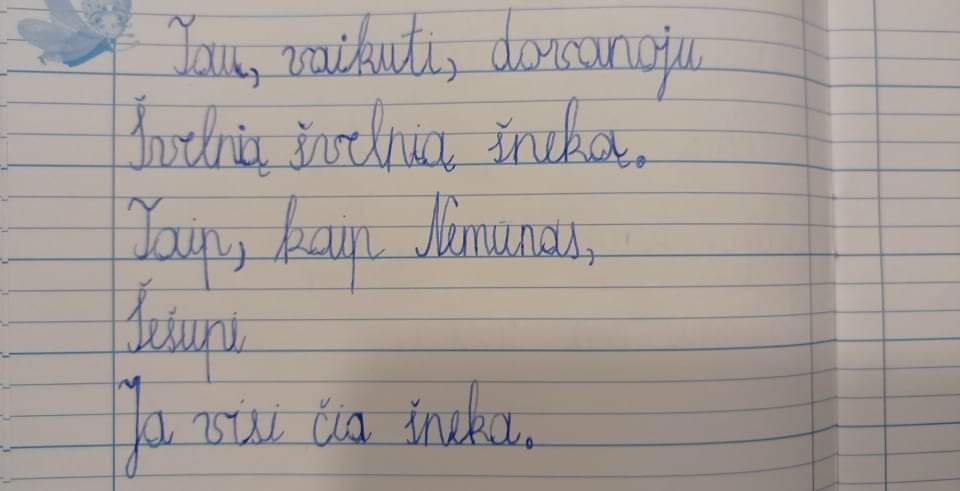 Tau, vaikuti, dovanoju
Švelnią švelnią šneką.
Taip, kaip Nemunas,
Šešupė
Ja visi čia šneka.